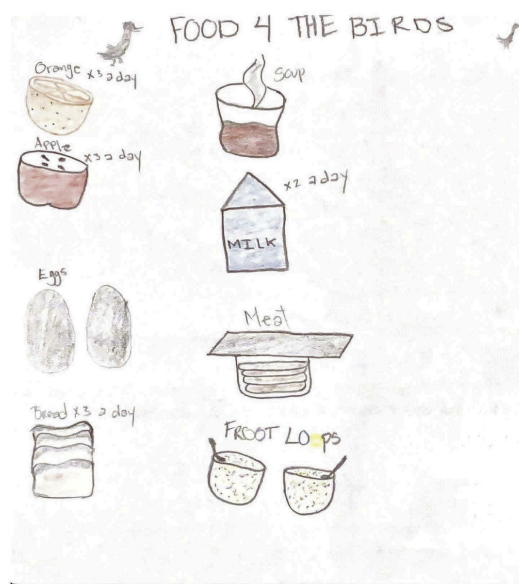 FOOD 4 THE BIRDS
Orange x3 a day
Apple x3 a day
Eggs
Bread x3 a day
Soup
x2 a day
MILK
Meat
FROOT LOOPS